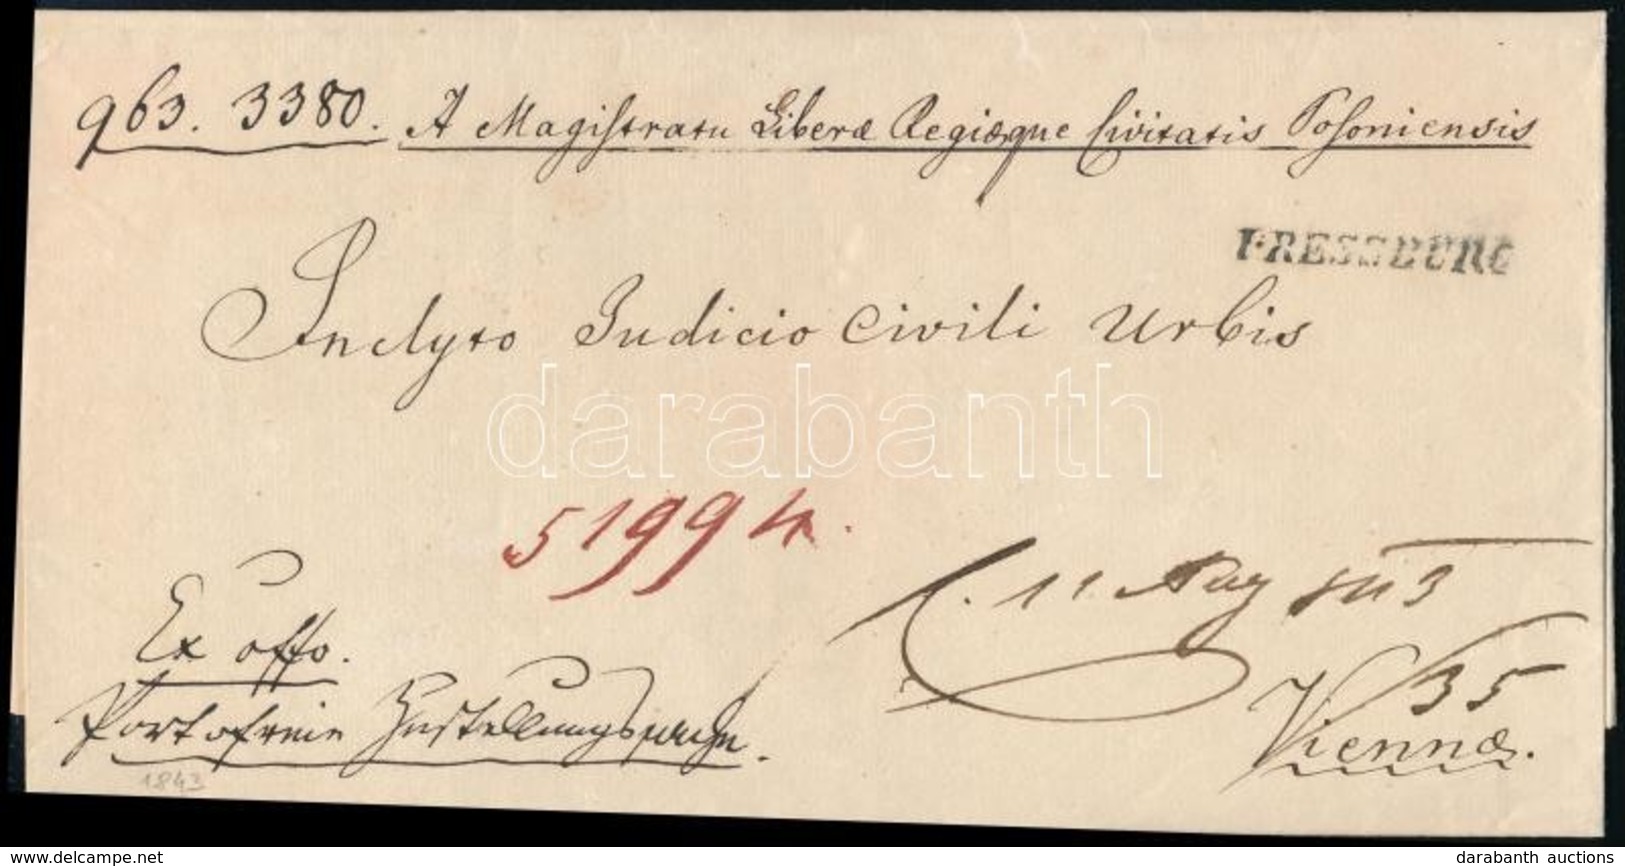 963. 3380. A Magistratu Liberæ Regiæque Civitatis Posoniensis
PRESSBURG
Inclyto Judicio Civili Urbis
darabanth
51994.
11 Aug 843
Ex offo.
35
Portofreie Zustellungssache.
Viennæ.
1843
www.darabanth.com
darabanth auctions